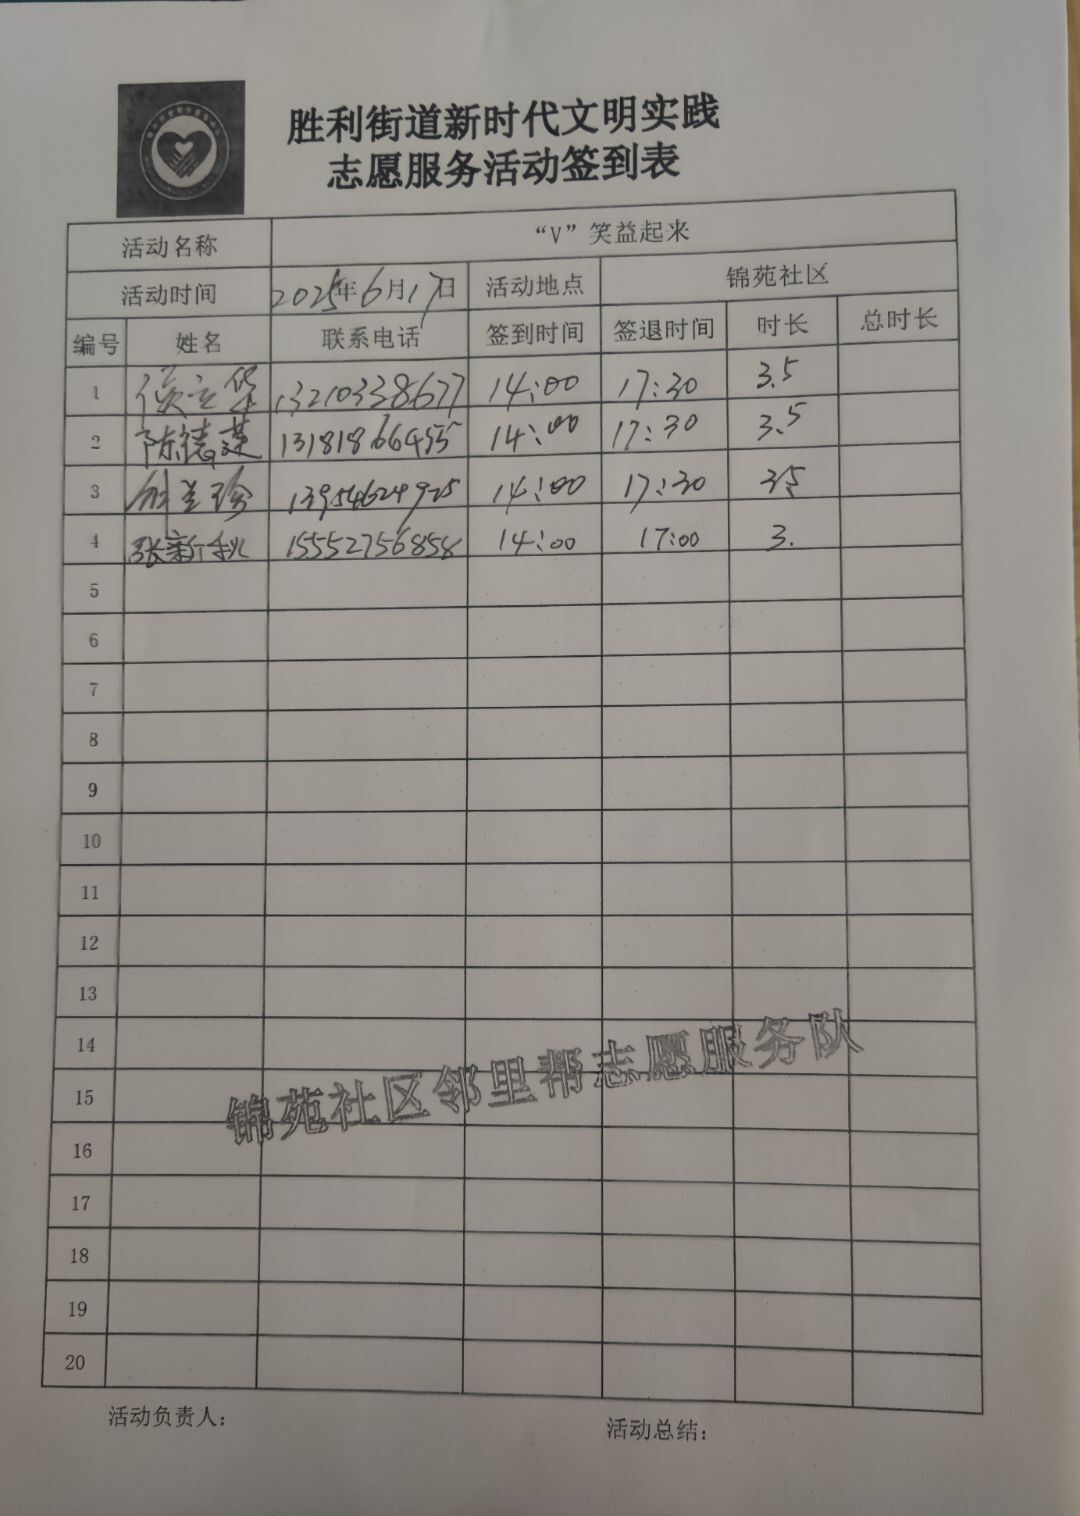 胜利街道新时代文明实践
志愿服务活动签到表
活动名称 “V”笑益起来
活动时间 2025年6月17日 活动地点 锦苑社区
编号 姓名 联系电话 签到时间 签退时间 时长 总时长
1 侯立华 13210338677 14:00 17:30 3.5
2 陈德英 13181866455 14:00 17:30 3.5
3 兰珍 14:00 17:30 3.5
4 张新秋 15552756858 14:00 17:00 3.
5
6
7
8
9
10
11
12
13
14
15
16
17
18
19
20
锦苑社区邻里帮志愿服务队
活动负责人: 活动总结: